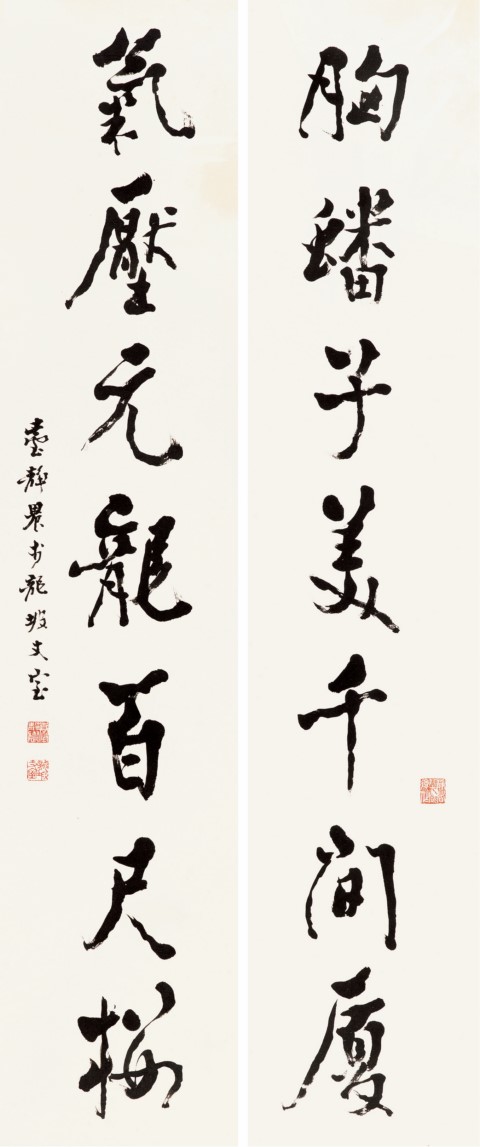 胸蟠子美千間廈
氣壓元龍百尺樓
臺靜農書於龍坡丈室